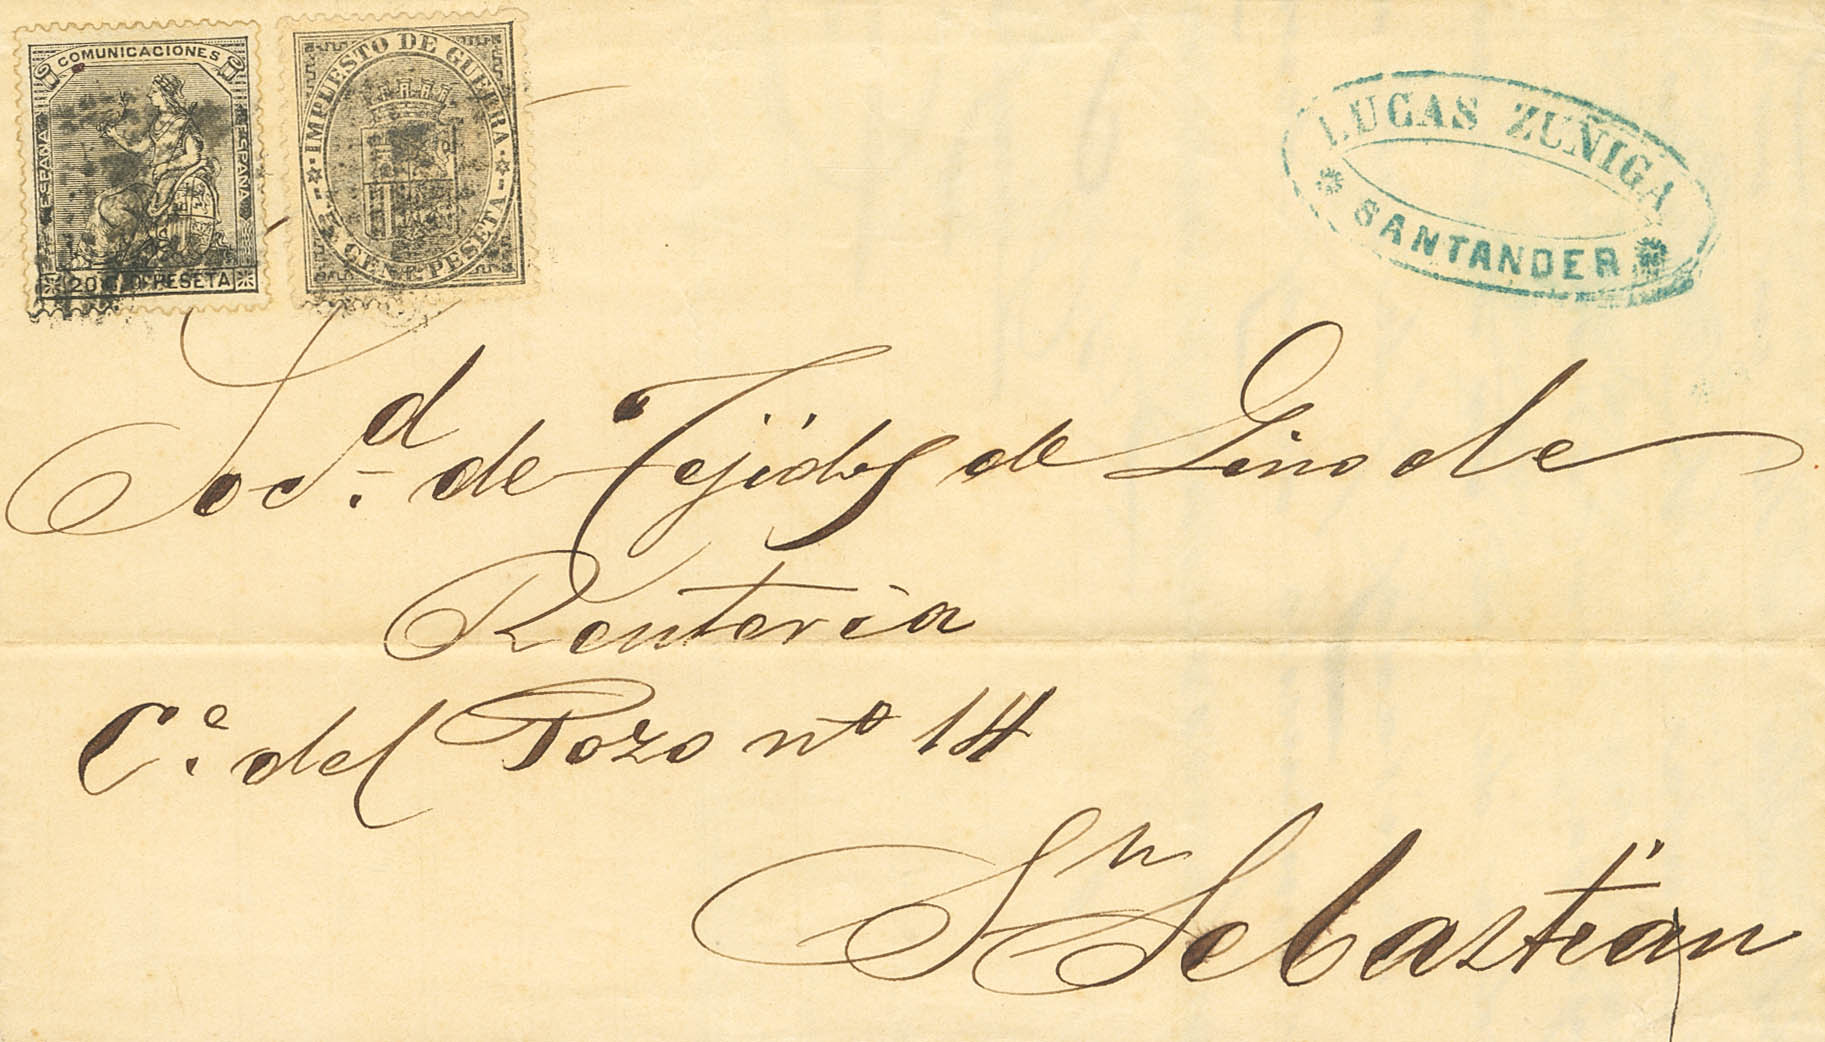 COMUNICACIONES
ESPAÑA
ESPAÑA
20 C. D. PESETA
IMPUESTO DE GUERRA
5 CENT. PESETA
LUCAS ZUÑIGA
SANTANDER
Soc.d de Tejidos de Lino de
Renteria
C.e del Pozo nº 14
Sn Sebastián